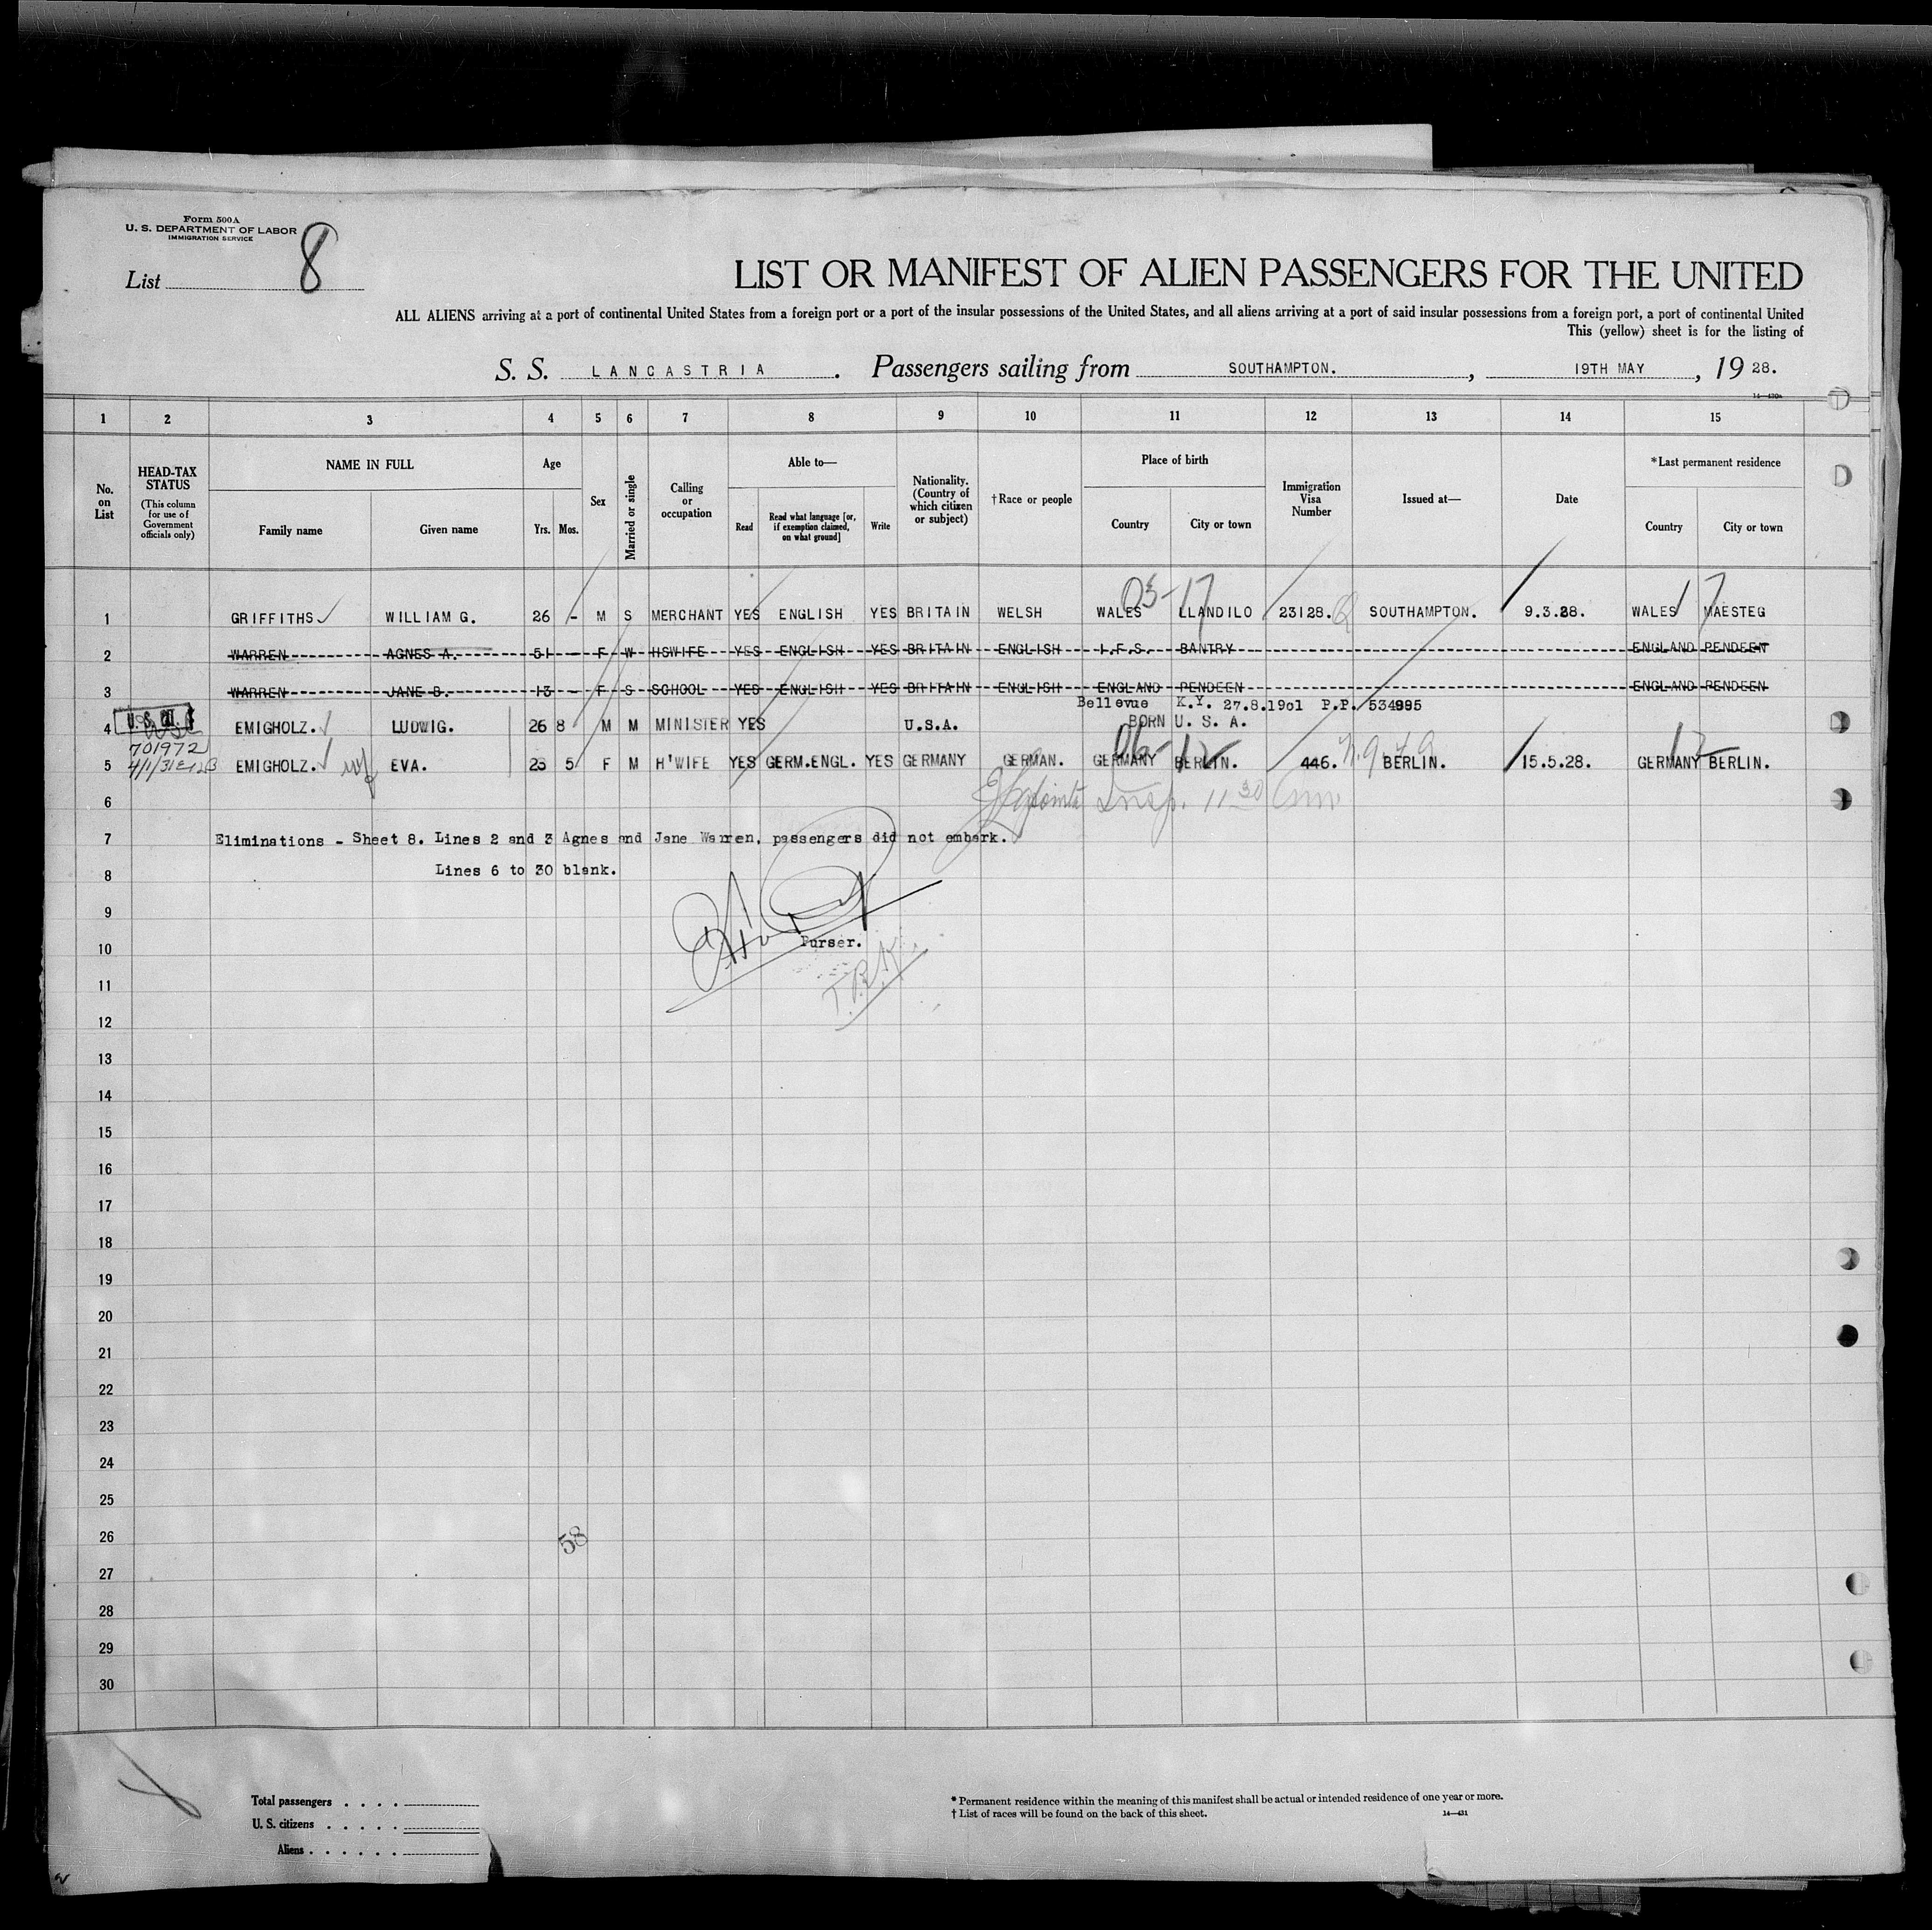 Form 500A
U. S. DEPARTMENT OF LABOR
IMMIGRATION SERVICE
List 8
LIST OR MANIFEST OF ALIEN PASSENGERS FOR THE UNITED
ALL ALIENS arriving at a port of continental United States from a foreign port or a port of the insular possessions of the United States, and all aliens arriving at a port of said insular possessions from a foreign port, a port of continental United
This (yellow) sheet is for the listing of
S. S. LANCASTRIA. Passengers sailing from SOUTHAMPTON., 19TH MAY, 1928.
14—430a
1 2 3 4 5 6 7 8 9 10 11 12 13 14 15
No. on List
HEAD-TAX STATUS
(This column for use of Government officials only)
NAME IN FULL
Family name Given name
Age
Yrs. Mos.
Sex
Married or single
Calling or occupation
Able to—
Read
Read what language [or, if exemption claimed, on what ground]
Write
Nationality. (Country of which citizen or subject)
†Race or people
Place of birth
Country City or town
Immigration Visa Number
Issued at—
Date
*Last permanent residence
Country City or town
05-17 17
1 GRIFFITHS WILLIAM G. 26 - M S MERCHANT YES ENGLISH YES BRITAIN WELSH WALES LLANDILO 23128. SOUTHAMPTON. 9.3.28. WALES MAESTEG
2 WARREN AGNES A. 51 - F W HSWIFE YES ENGLISH YES BRITAIN ENGLISH I.F.S. BANTRY ENGLAND PENDEEN
3 WARREN JANE B. 13 - F S SCHOOL YES ENGLISH YES BRITAIN ENGLISH ENGLAND PENDEEN ENGLAND PENDEEN
Bellevue K.Y. 27.8.1901 P.P. 534995
4 EMIGHOLZ. LUDWIG. 26 8 M M MINISTER YES U.S.A. BORN U. S. A.
701972
06-12 12
5 4/1/31 EMIGHOLZ. wf EVA. 23 5 F M H'WIFE YES GERM.ENGL. YES GERMANY GERMAN. GERMANY BERLIN. 446. BERLIN. 15.5.28. GERMANY BERLIN.
6 Insp. 11 30 am
7 Eliminations - Sheet 8. Lines 2 and 3 Agnes and Jane Warren, passengers did not embark.
8 Lines 6 to 30 blank.
9
10 Purser.
11
12
13
14
15
16
17
18
19
20
21
22
23
24
25
26 58
27
28
29
30
Total passengers
U. S. citizens
Aliens
* Permanent residence within the meaning of this manifest shall be actual or intended residence of one year or more.
† List of races will be found on the back of this sheet.
14—431